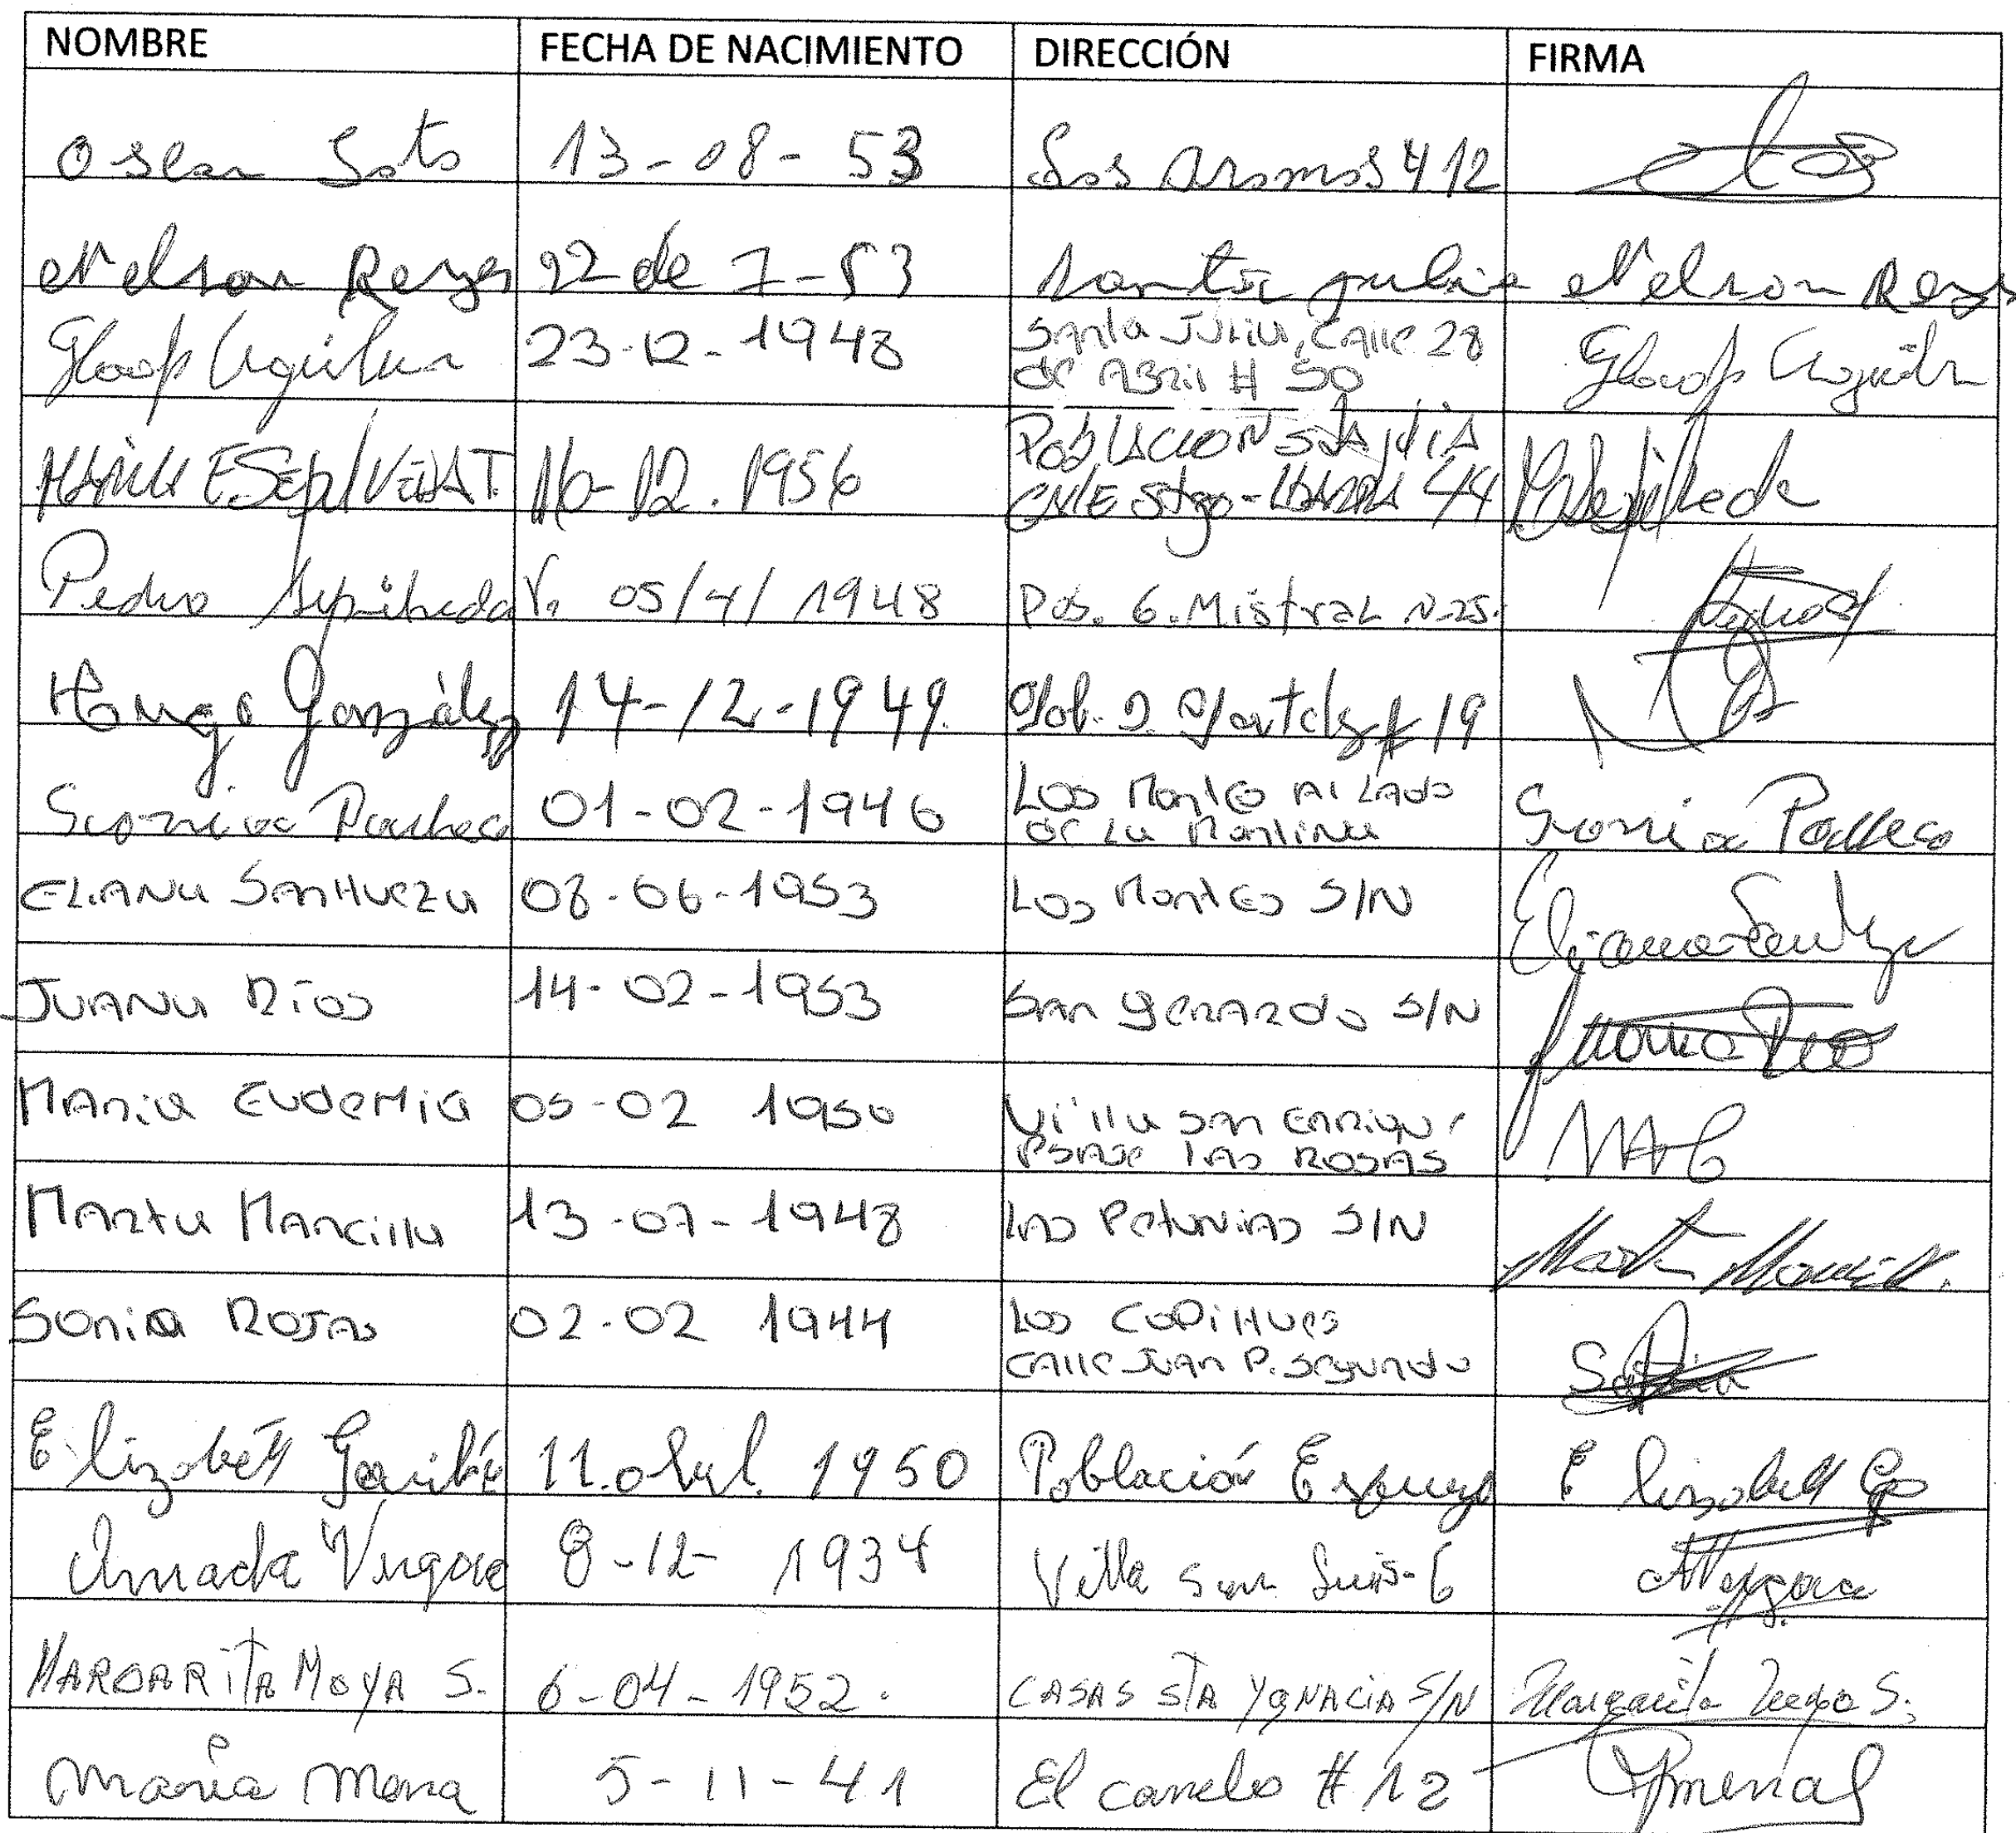 NOMBRE FECHA DE NACIMIENTO DIRECCIÓN FIRMA
Oscar Soto 13-08-53 Los Aromos 412
Nelson Reyes 22 de 7-53 Santa Julia Nelson Reyes
Aguilar 23-12-1948 Santa Julia, Calle 28
de Abril # 50
16-12.1956 Población Sta Julia
Calle Stgo 44
Pedro Sepulveda V. 05/4/1948 Pob. G. Mistral N-25.
Hugo González 14-12-1949. Pob. 19
Sonia Pacheco 01-02-1946 Los Montes Al Lado Sonia Pacheco
de La
Eliana Sanhueza 08-06-1953 Los Montes S/N Eliana
Juana Ríos 14-02-1953 San Gerardo S/N Juana
Maria Eudemia 05-02 1950 Villa San Enrique
Psaje Las Rosas
Marta Mancilla 13-07-1948 Las Petunias S/N Marta
Sonia Rojas 02-02 1944 Los Copihues
Calle Juan P. Segundo
Elizabeth 11. 1950 Población Elizabeth
Amada Vergara 8-12- 1934 Villa San Luis-6
MARGARITA MOYA S. 6-04-1952. CASAS STA YGNACIA S/N Margarita Moya S.
Maria Mena 5-11-41 El canelo #12